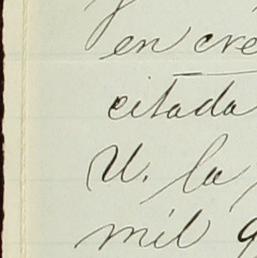 en
citada
U. la
mil